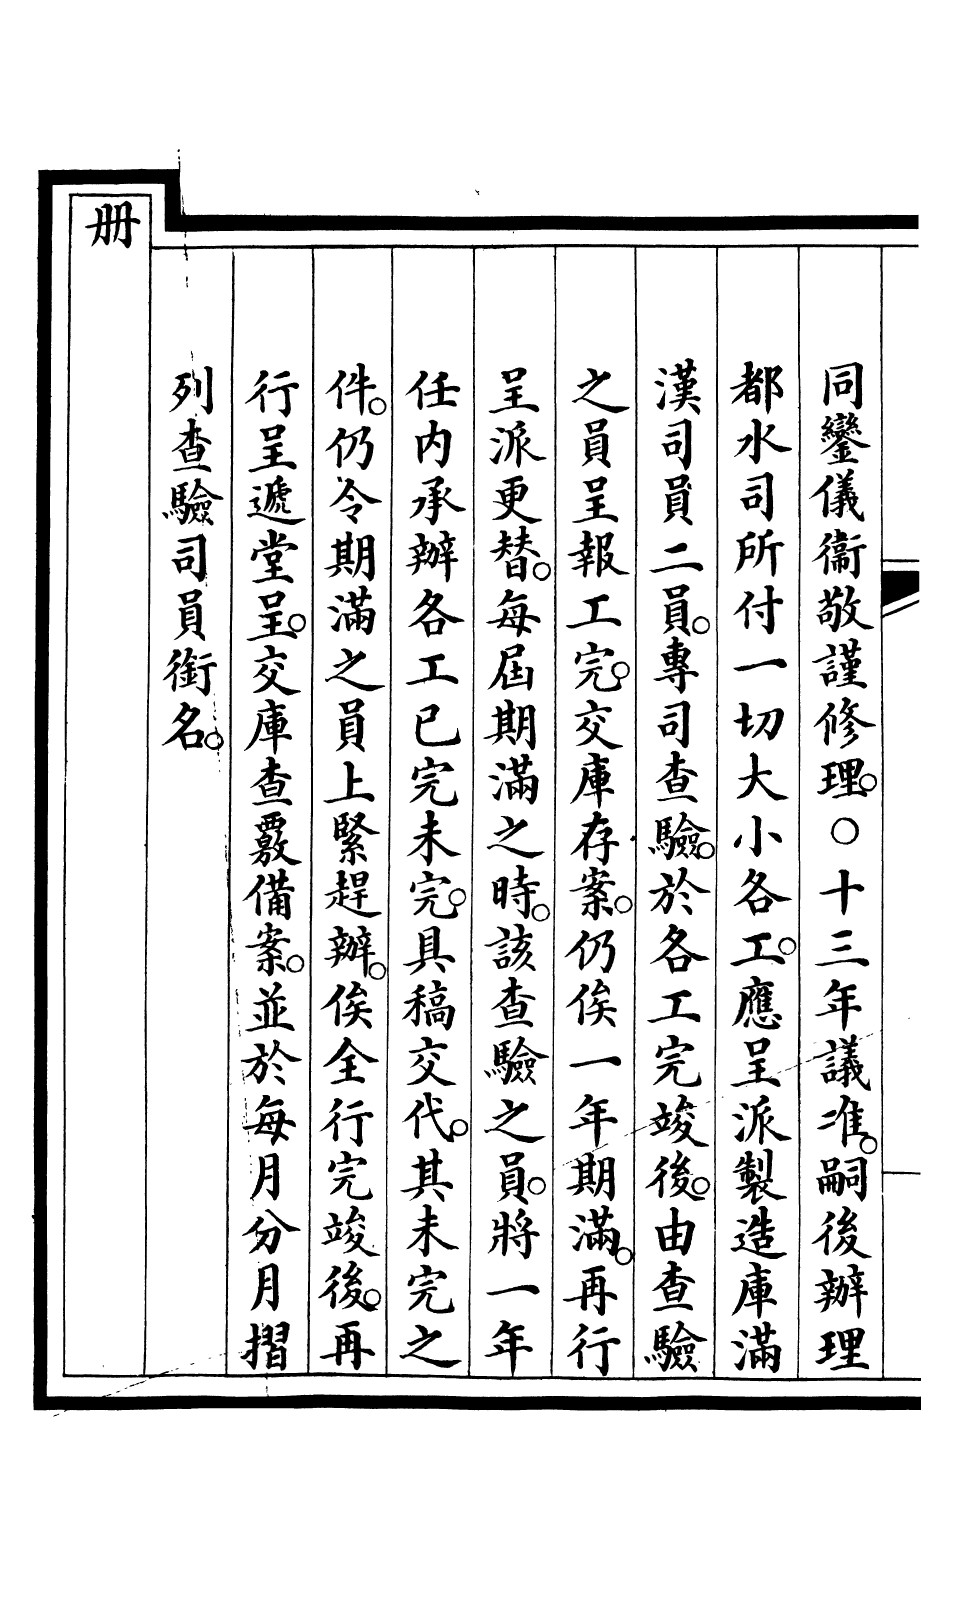 同鑾儀衞敬謹修理。○十三年議准。嗣後辦理
都水司所付一切大小各工。應呈派製造庫滿
漢司員二員。專司查驗。於各工完竣後。由查驗
之員呈報工完。交庫存案。仍俟一年期滿。再行
呈派更替。每屆期滿之時。該查驗之員。將一年
任內承辦各工已完未完。具稿交代。其未完之
件。仍令期滿之員上緊趕辦。俟全行完竣後。再
行呈遞堂呈。交庫查覈備案。並於每月分月摺
列查驗司員銜名。
册